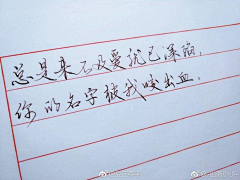 总是来不及爱就已深陷，
你的名字被我咬出血，